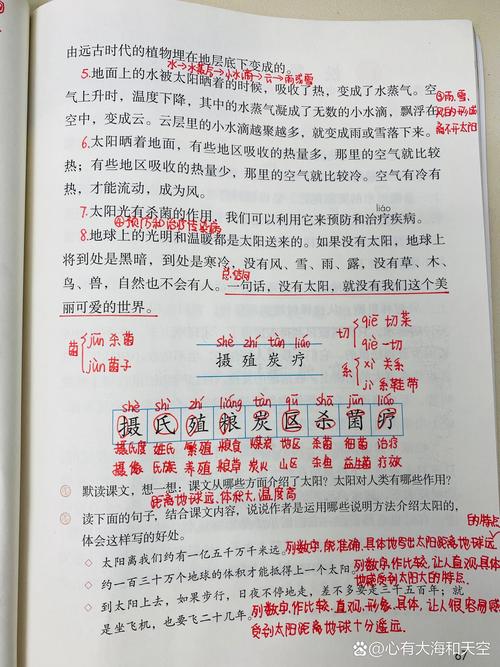 由远古时代的植物埋在地层底下变成的。
水→水蒸气→小水滴→云→雨或雪
5.地面上的水被太阳晒着的时候，吸收了热，变成了水蒸气。空
气上升时，温度下降，其中的水蒸气凝成了无数的小水滴，飘浮在
空中，变成云。云层里的小水滴越聚越多，就变成雨或雪落下来。
③雨、雪、
风的形成
离不开太阳
6.太阳晒着地面，有些地区吸收的热量多，那里的空气就比较
热；有些地区吸收的热量少，那里的空气就比较冷。空气有冷有
热，才能流动，成为风。
liáo
7.太阳光有杀菌的作用，我们可以利用它来预防和治疗疾病。
④预防和治疗疾病
8.地球上的光明和温暖都是太阳送来的。如果没有太阳，地球上
将到处是黑暗，到处是寒冷，没有风、雪、雨、露，没有草、木、
总结
鸟、兽，自然也不会有人。一句话，没有太阳，就没有我们这个美
丽可爱的世界。
菌 jūn 杀菌
jùn 菌子
shè zhí tàn liáo
摄 殖 炭 疗
切 qiē 切菜
qiè 一切
系 xì 关系
jì 系鞋带
shè shì zhí liáng tàn qū shā jūn liáo
摄 氏 殖 粮 炭 区 杀 菌 疗
摄氏度 姓氏 繁殖 粮食 煤炭 地区 杀菌 细菌 治疗
摄像 氏族 养殖 粮草 炭火 山区 杀鱼 益生菌 疗效
默读课文，想一想：课文从哪些方面介绍了太阳？太阳对人类有哪些作用？
距离地球远、体积大、温度高
读下面的句子，结合课文内容，说说作者是运用哪些说明方法介绍太阳的，
体会这样写的好处。
太阳离我们约有一亿五千万千米远。
列数字，能准确、具体地写出太阳距离地球远
的特点。
约一百三十万个地球的体积才能抵得上一个太阳。
列数字，作比较，让人直观、具体
地感受到太阳大的特点。
到太阳上去，如果步行，日夜不停地走，差不多要走三千五百年；就
是坐飞机，也要飞二十几年。
列数字，作比较，直观、形象、具体，让人很容易感
受到太阳距离地球十分遥远。
67
@心有大海和天空